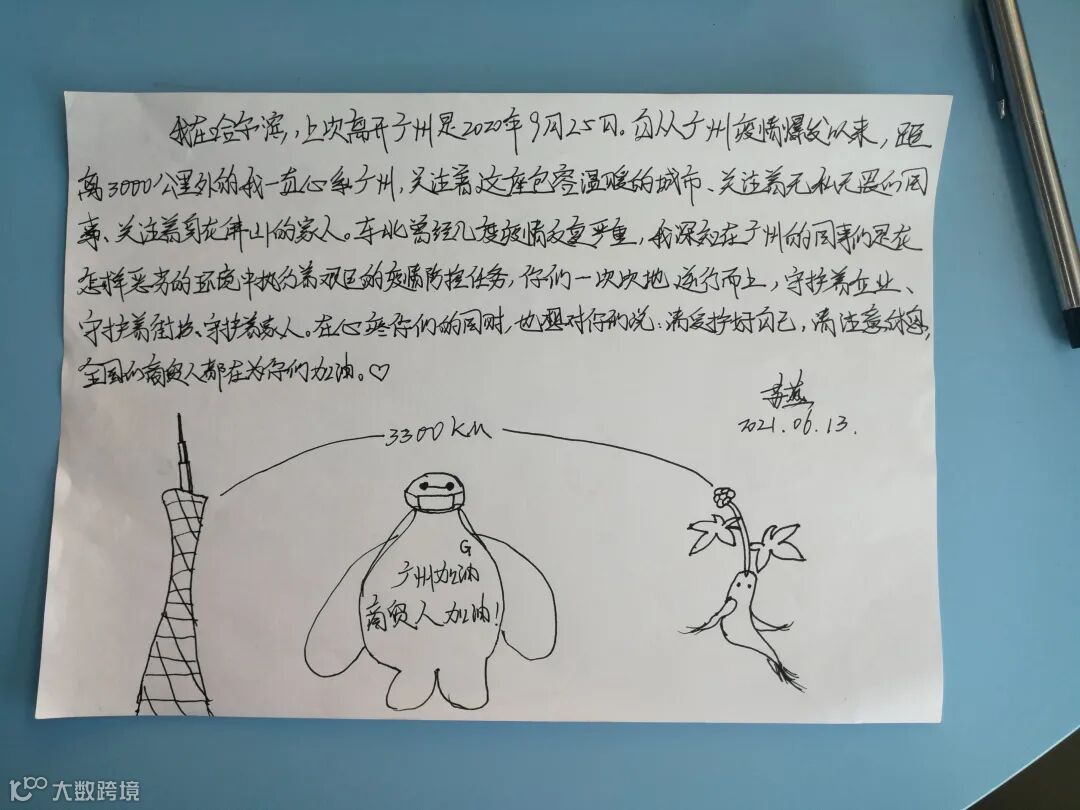 我在哈尔滨，上次离开广州是2020年9月25日。自从广州疫情爆发以来，距
离3000公里外的我一直心系广州，关注着这座包容温暖的城市、关注着无私无畏的同
事、关注着身在佛山的家人。东北曾经几度疫情反复严重，我深知在广州的同事们是在
怎样恶劣的环境中执行着艰巨的疫情防控任务，你们一次次地逆行而上，守护着企业、
守护着街坊、守护着家人。在心疼你们的同时，也想对你们说：请爱护好自己，请注意休息，
全国的商贸人都在为你们加油。♡
2021.06.13.
3300KM
G
广州加油
商贸人加油！
大数跨境